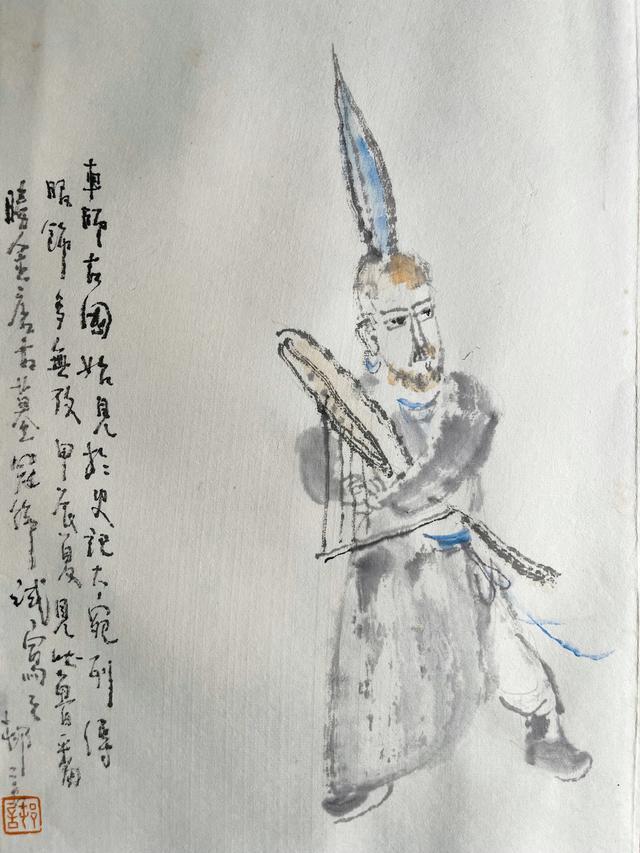 車師古國始見於史記大宛列傳
服飾多無攷甲辰夏見吐魯番
勝金店古墓冠飾試寫之